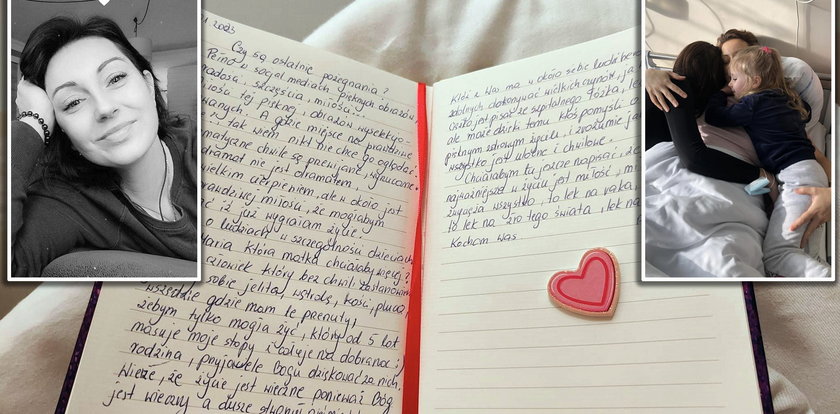 1 2023
Czy są ostatnie pożegnania?
Pełno w social mediach, pięknych obrazów,
radości, szczęścia, miłości...
iłości tej pięknej, obrazów wyselekcjo-
wanych. A gdzie miejsce na prawdziwe
tak wiem, nikt nie chce go oglądać.
matyczne chwile są przewijane, wyrzucone.
dramat nie jest dramatem,
wielkim cierpieniem, ale w około jest
prawdziwej miłości, że mogłabym
ać iż już wygrałam życie.
o ludziach, w szczególności dzieciach
Hania która matka chciałaby więcej?
człowiek który bez chwili zastanowi
sobie jelita, wątrobę, kości, płuca,
wszędzie gdzie mam te przerzuty,
żebym tylko mogła żyć, który od 5 lat
masuje moje stopy i całuje na dobranoc :)
rodzina, przyjaciele Bogu dziękować za nich.
Wierzę, że życie jest wieczne ponieważ Bóg
jest wieczny a duszę stworzył
Któż z Was ma w około siebie ludzi
zdolnych dokonywać wielkich czynów, ja
Ciężko jest pisać ze szpitalnego łóżka, le
ale może dzięki temu ktoś pomyśli o
pięknym zdrowym życiu, i zrozumie jak
wszystko jest ulotne i chwilowe.
Chciałabym tu jeszcze napisać, że
najważniejsza w życiu jest miłość, mi
zwycięża wszystko, to lek na raka,
to lek na zło tego świata, lek na
Kocham Was.